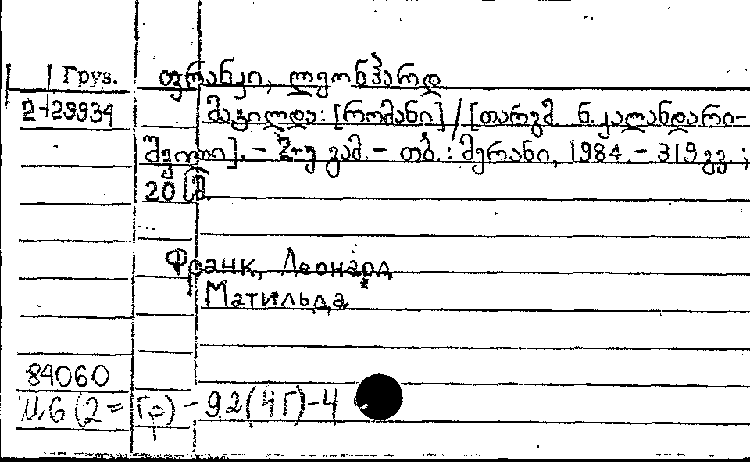 Груз. ფრანკი, ლეონჰარდ
2-29934 მატილდა: [რომანი] / [თარგმ. ნ. კალანდარი-
შვილი]. - 2-ე გამ. - თბ. : მერანი, 1984. - 319 გვ. ;
20 სმ.
Франк, Леонард
Матильда
84060
И.6 (2= Гр) - 92(4Г)-4